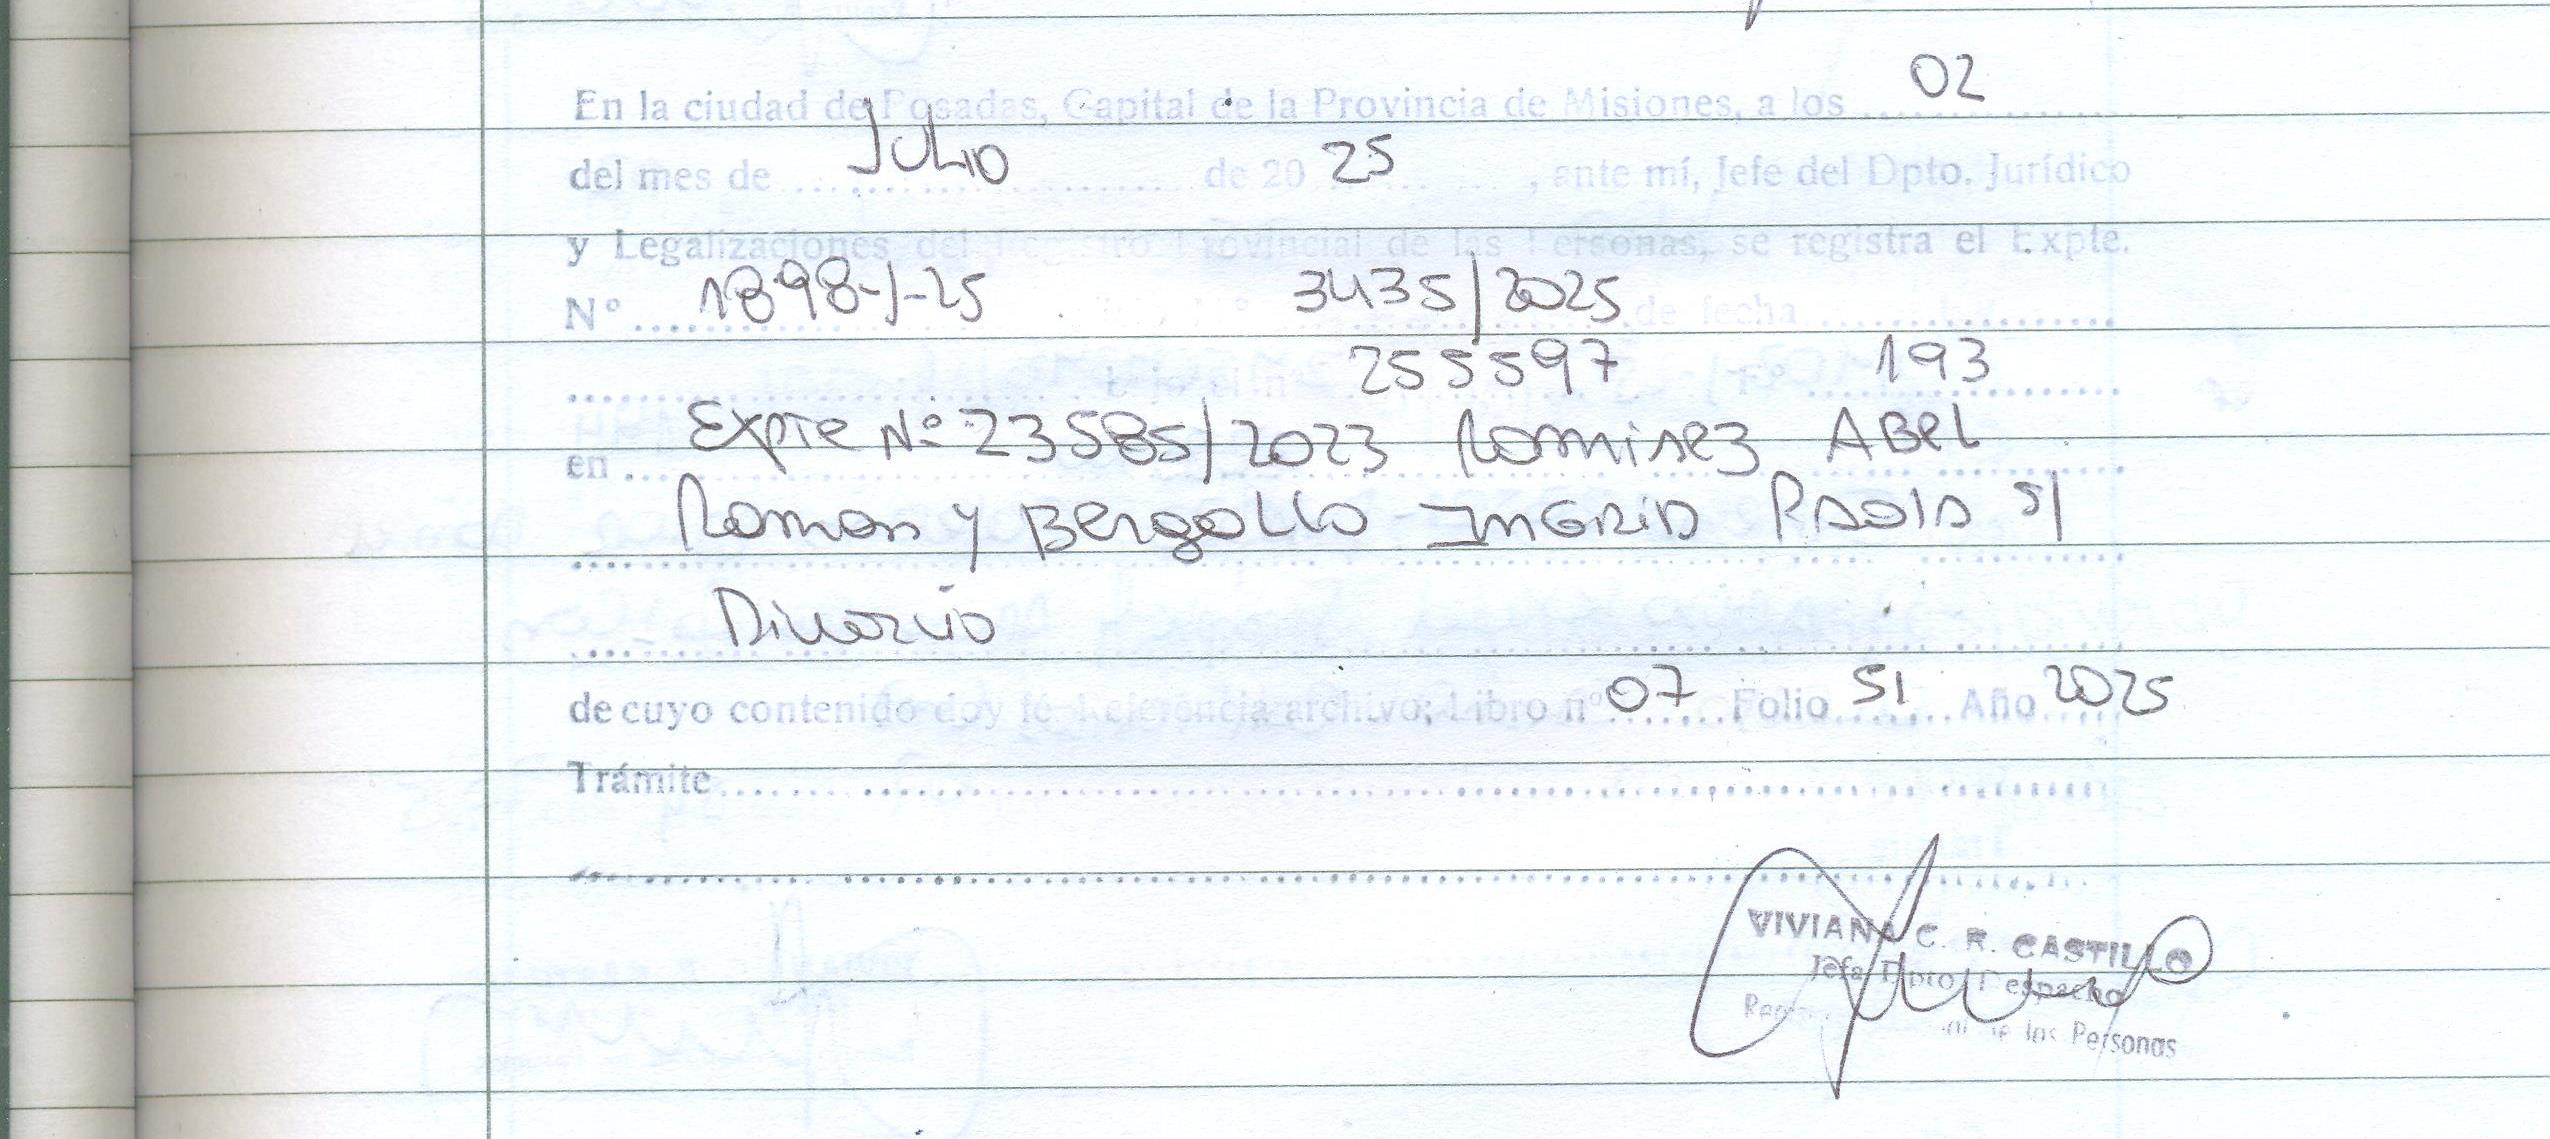 En la ciudad de Posadas, Capital de la Provincia de Misiones, a los 02
del mes de JULIO de 20 25, ante mí, Jefe del Dpto. Jurídico
y Legalizaciones del Registro Provincial de las Personas, se registra el Expte.
N° 1898-J-25 3435/2025 de fecha
bajo el n° 255597 F° 193
en Expte N° 23585/2023 Ramirez ABEL
Ramon y Bergallo INGRID PAOLA s/
Divorcio
de cuyo contenido doy fé. Referencia archivo; Libro n° 07 Folio 51 Año 2025
Trámite
VIVIANA C. R. CASTILLO
Jefa Dpto. Despacho
de las Personas